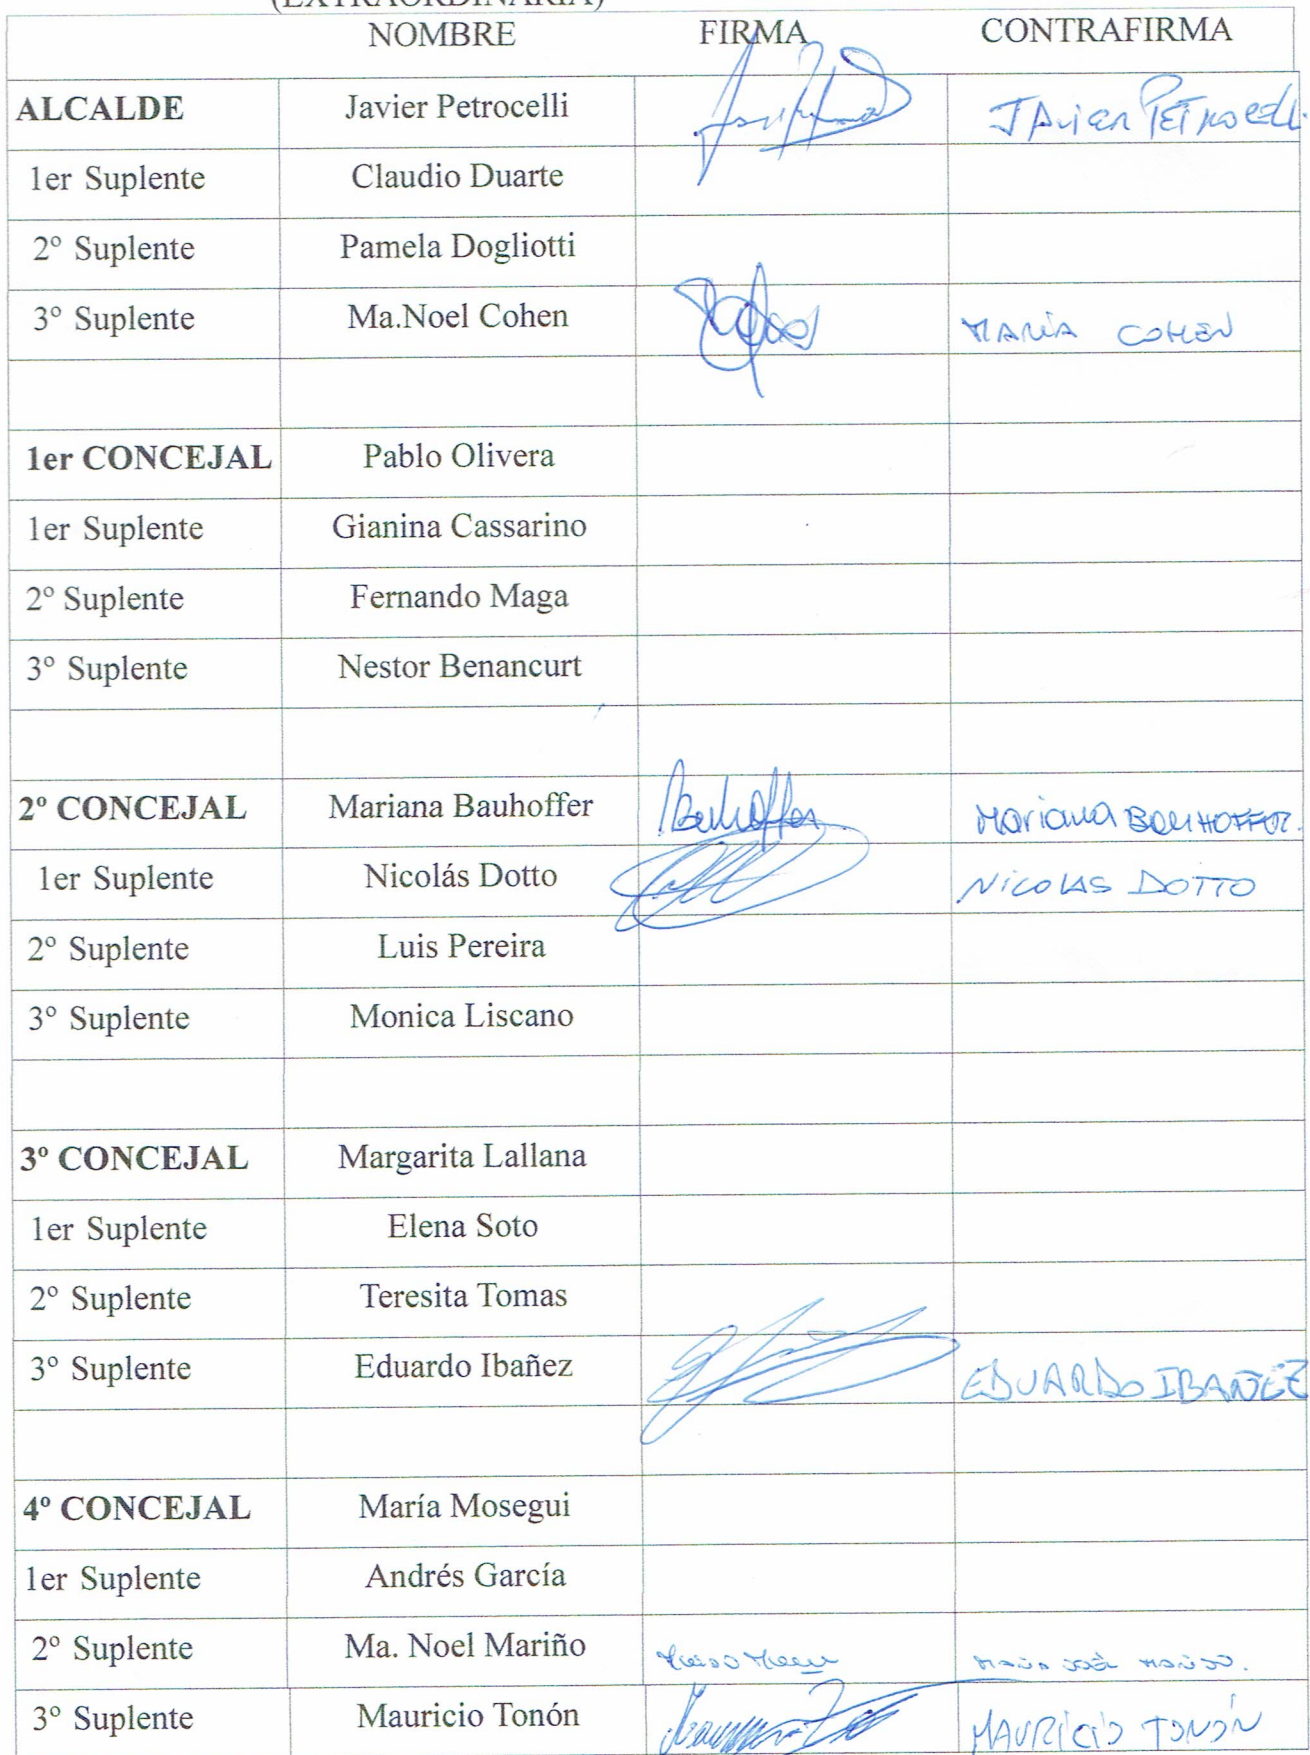 (EXTRAORDINARIA)
NOMBRE FIRMA CONTRAFIRMA
ALCALDE Javier Petrocelli JAvier PETROCELLI
1er Suplente Claudio Duarte
2º Suplente Pamela Dogliotti
3º Suplente Ma.Noel Cohen MARÍA COHEN
1er CONCEJAL Pablo Olivera
1er Suplente Gianina Cassarino
2º Suplente Fernando Maga
3º Suplente Nestor Benancurt
2º CONCEJAL Mariana Bauhoffer Bauhoffer Mariana BAUHOFFER.
1er Suplente Nicolás Dotto NICOLAS DOTTO
2º Suplente Luis Pereira
3º Suplente Monica Liscano
3º CONCEJAL Margarita Lallana
1er Suplente Elena Soto
2º Suplente Teresita Tomas
3º Suplente Eduardo Ibañez EDUARDO IBAÑEZ
4º CONCEJAL María Mosegui
1er Suplente Andrés García
2º Suplente Ma. Noel Mariño
3º Suplente Mauricio Tonón MAURICIO TONÓN